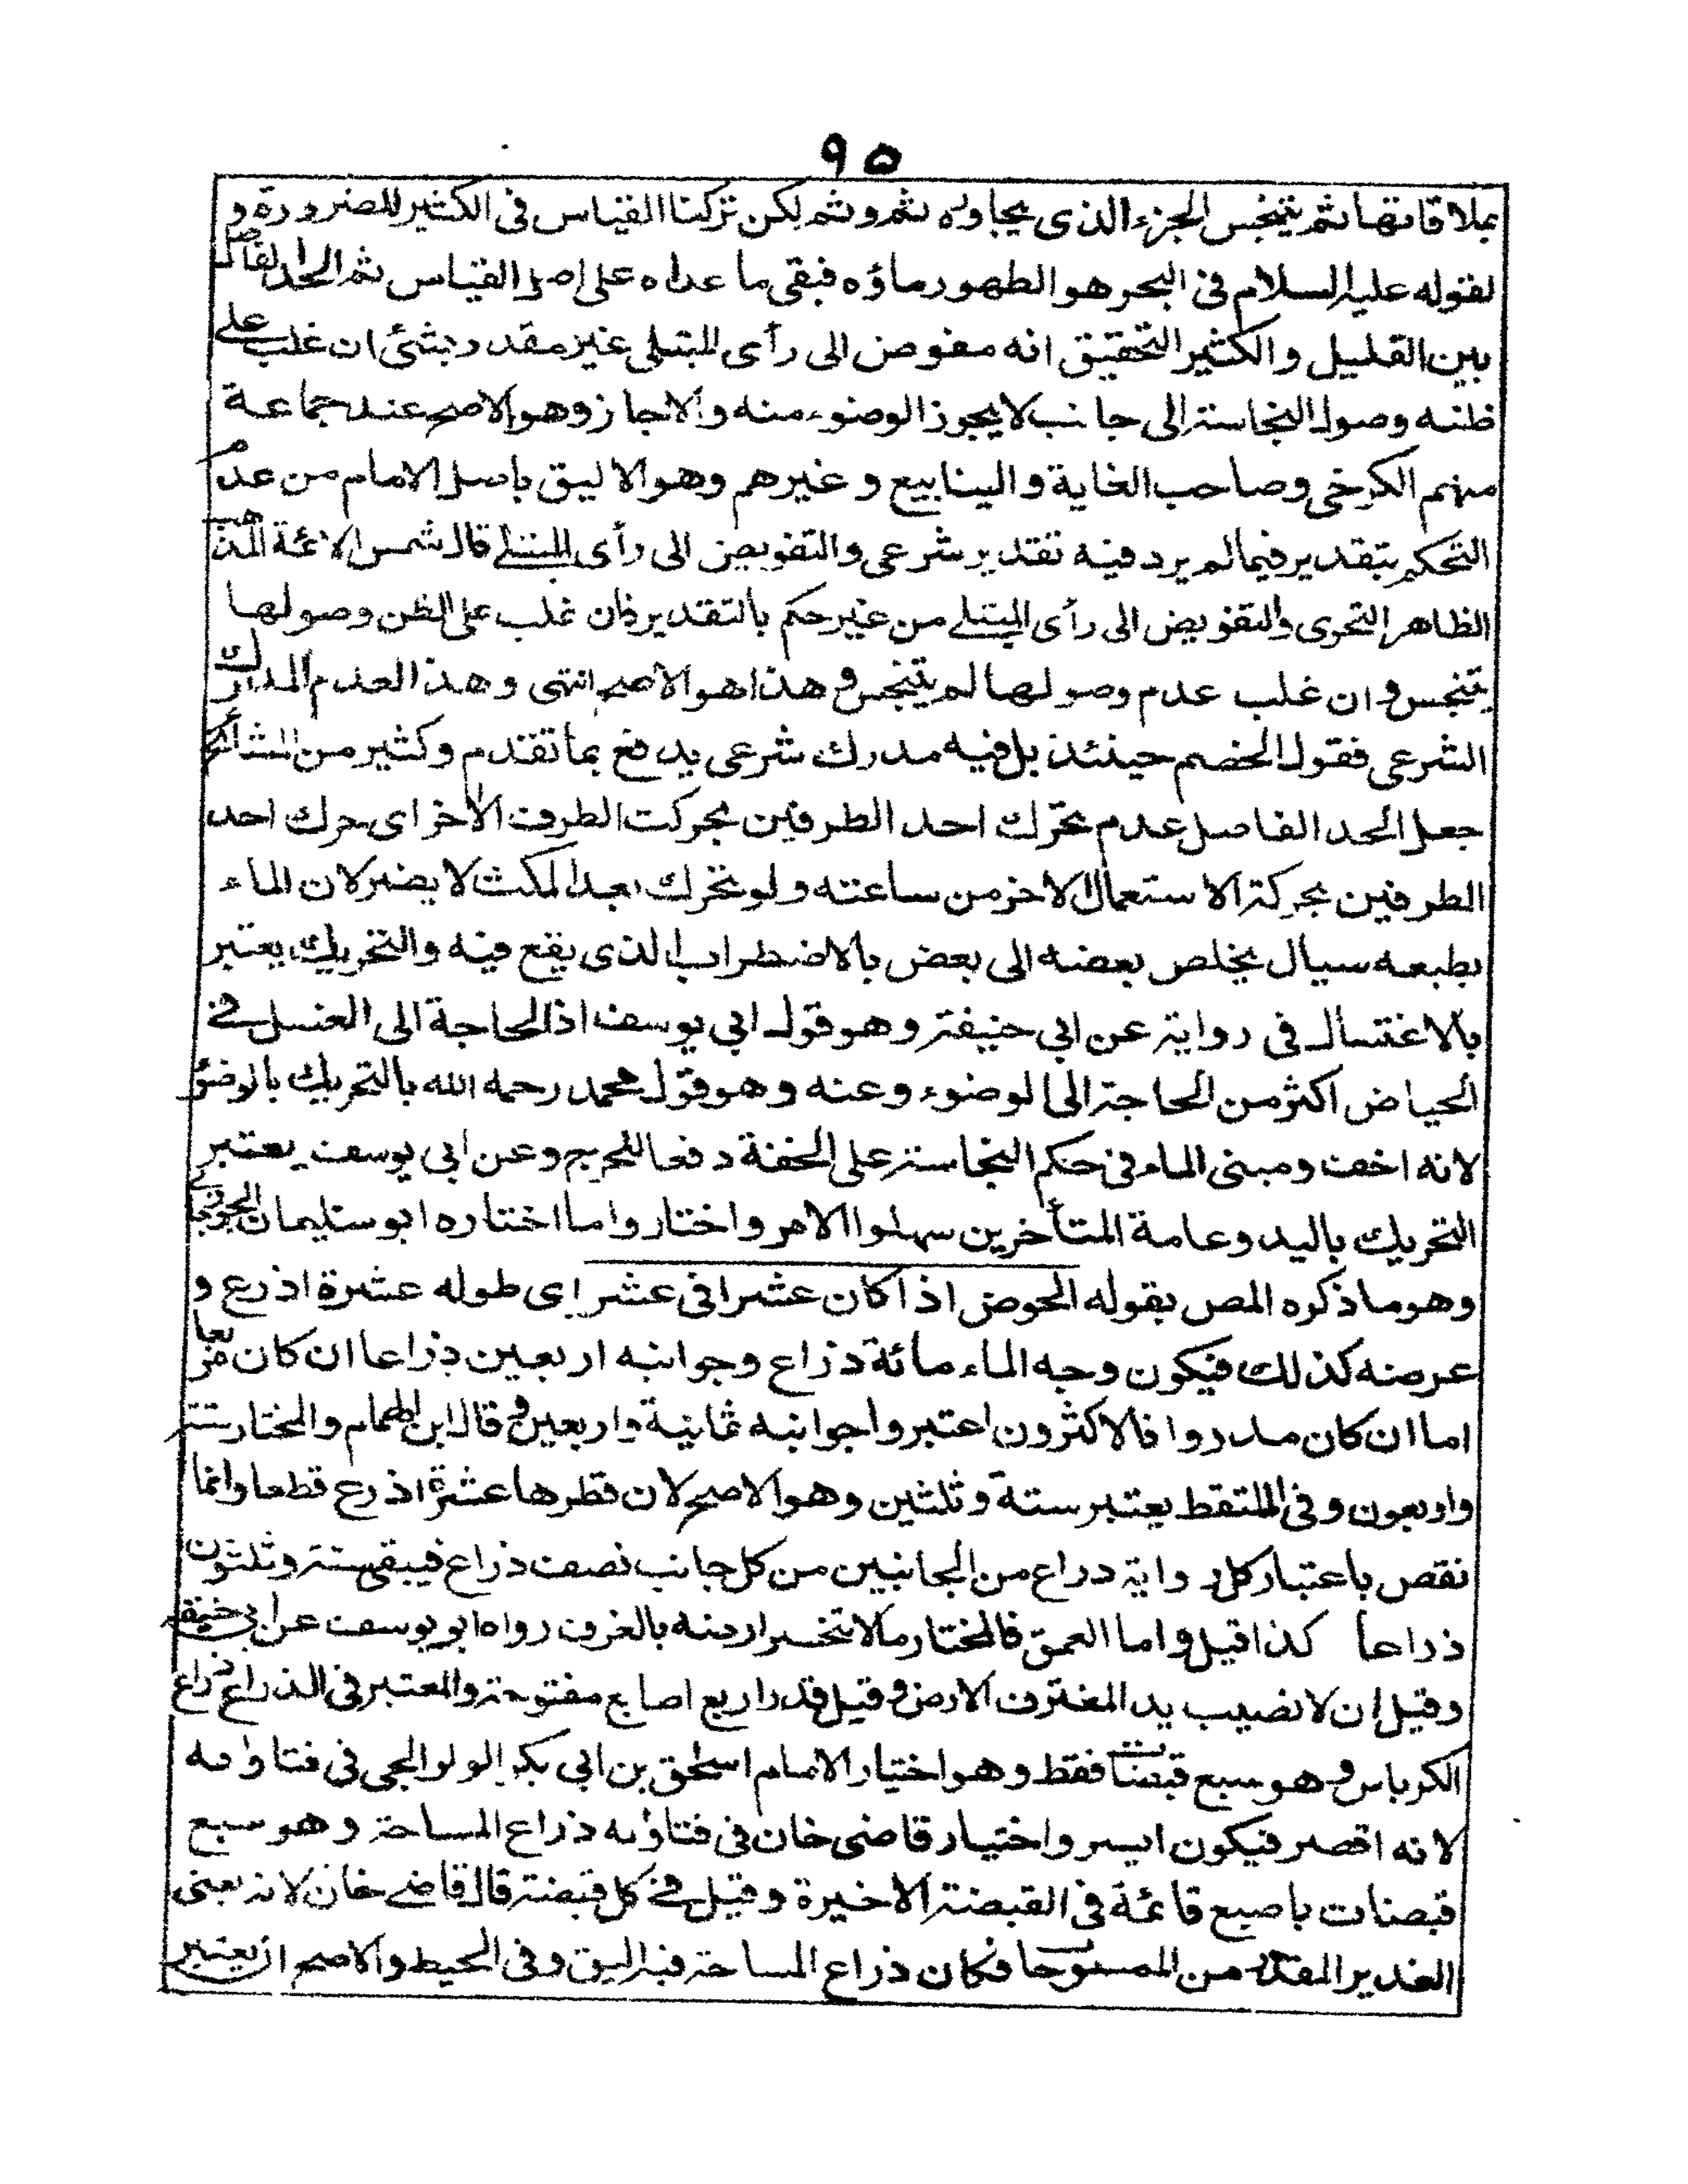 ٩٥
بملاقاتها ثم يتنجس الجزء الذى يجاوره ثم وثم لكن تركنا القياس فى الكثير للضرورة و
لقوله عليه السلام فى البحر هو الطهور ماؤه فبقى ما عداه على اصل القياس ثم الحد الفاصل
بين القليل والكثير التحقيق انه مفوض الى رأى المبتلى غير مقدر بشئ ان غلب على
ظنه وصول النجاسة الى جانب لا يجوز الوضوء منه والا جاز وهو الاصح عند جماعة
منهم الكرخى وصاحب الغاية والينابيع وغيرهم وهو الاليق باصل الامام من عدم
التحكم بتقدير فيما لم يرد فيه تقدير شرعى والتفويض الى رأى المبتلى قال شمس الائمة المذهب
الظاهر التحرى والتفويض الى رأى المبتلى من غير حكم بالتقدير فان غلب على الظن وصولها
يتنجس وان غلب عدم وصولها لم يتنجس وهذا هو الاصح انتهى وهذا العدم المدارك
الشرعى فقول الخصم حينئذ بل فيه مدرك شرعى يدفع بما تقدم وكثير من المشائخ
جعل الحد الفاصل عدم تحرك احد الطرفين بحركت الطرف الاخر اى حرك احد
الطرفين بحركة الاستعمال الاخر من ساعته ولو تحرك بعد المكث لا يضر لان الماء
بطبعه سيال يخلص بعضه الى بعض بالاضطراب الذى يقع فيه والتحريك يعتبر
بالاغتسال فى رواية عن ابى حنيفة وهو قول ابى يوسف اذ الحاجة الى الغسل فى
الحياض اكثر من الحاجة الى الوضوء وعنه وهو قول محمد رحمه الله بالتحريك بالوضوء
لانه اخف ومبنى الماء فى حكم النجاسة على الخفة دفعا للحرج وعن ابى يوسف يعتبر
التحريك باليد وعامة المتأخرين سهلوا الامر واختاروا ما اختاره ابو سليمان الجوزجانى
وهو ما ذكره المص بقوله الحوض اذا كان عشرا فى عشر اى طوله عشرة اذرع و
عرضه كذلك فيكون وجه الماء مائة ذراع وجوانبه اربعين ذراعا ان كان مربعا
اما ان كان مدورا فالاكثرون اعتبروا جوانبه ثمانية واربعين وقال ابن الهمام والمختار ستة
واربعون وفى الملتقط يعتبر ستة وثلثين وهو الاصح لان قطرها عشرة اذرع قطعا وانما
نقص باعتبار كل رواية دراع من الجانبين من كل جانب نصف ذراع فيبقى ستة وثلثون
ذراعا كذا قيل واما العمق فالمختار ما لا تنحسر ارضه بالغرف رواه ابو يوسف عن ابى حنيفة
وقيل ان لا تصيب يد المغترف الارض وقيل قدر اربع اصابع مفتوحة والمعتبر فى الذراع ذراع
الكرباس وهو سبع قبضات فقط وهو اختيار الامام اسحق بن ابى بكر الولوالجى فى فتاواه
لانه اقصر فيكون ايسر واختيار قاضى خان فى فتاواه ذراع المساحة وهو سبع
قبضات باصبع قائمة فى القبضة الاخيرة وقيل فى كل قبضة قال قاضى خان لانه يعنى
الغدير المقدر من الممسوحا فكان ذراع المساحة فيه اليق وفى المحيط والاصح ان يعتبر